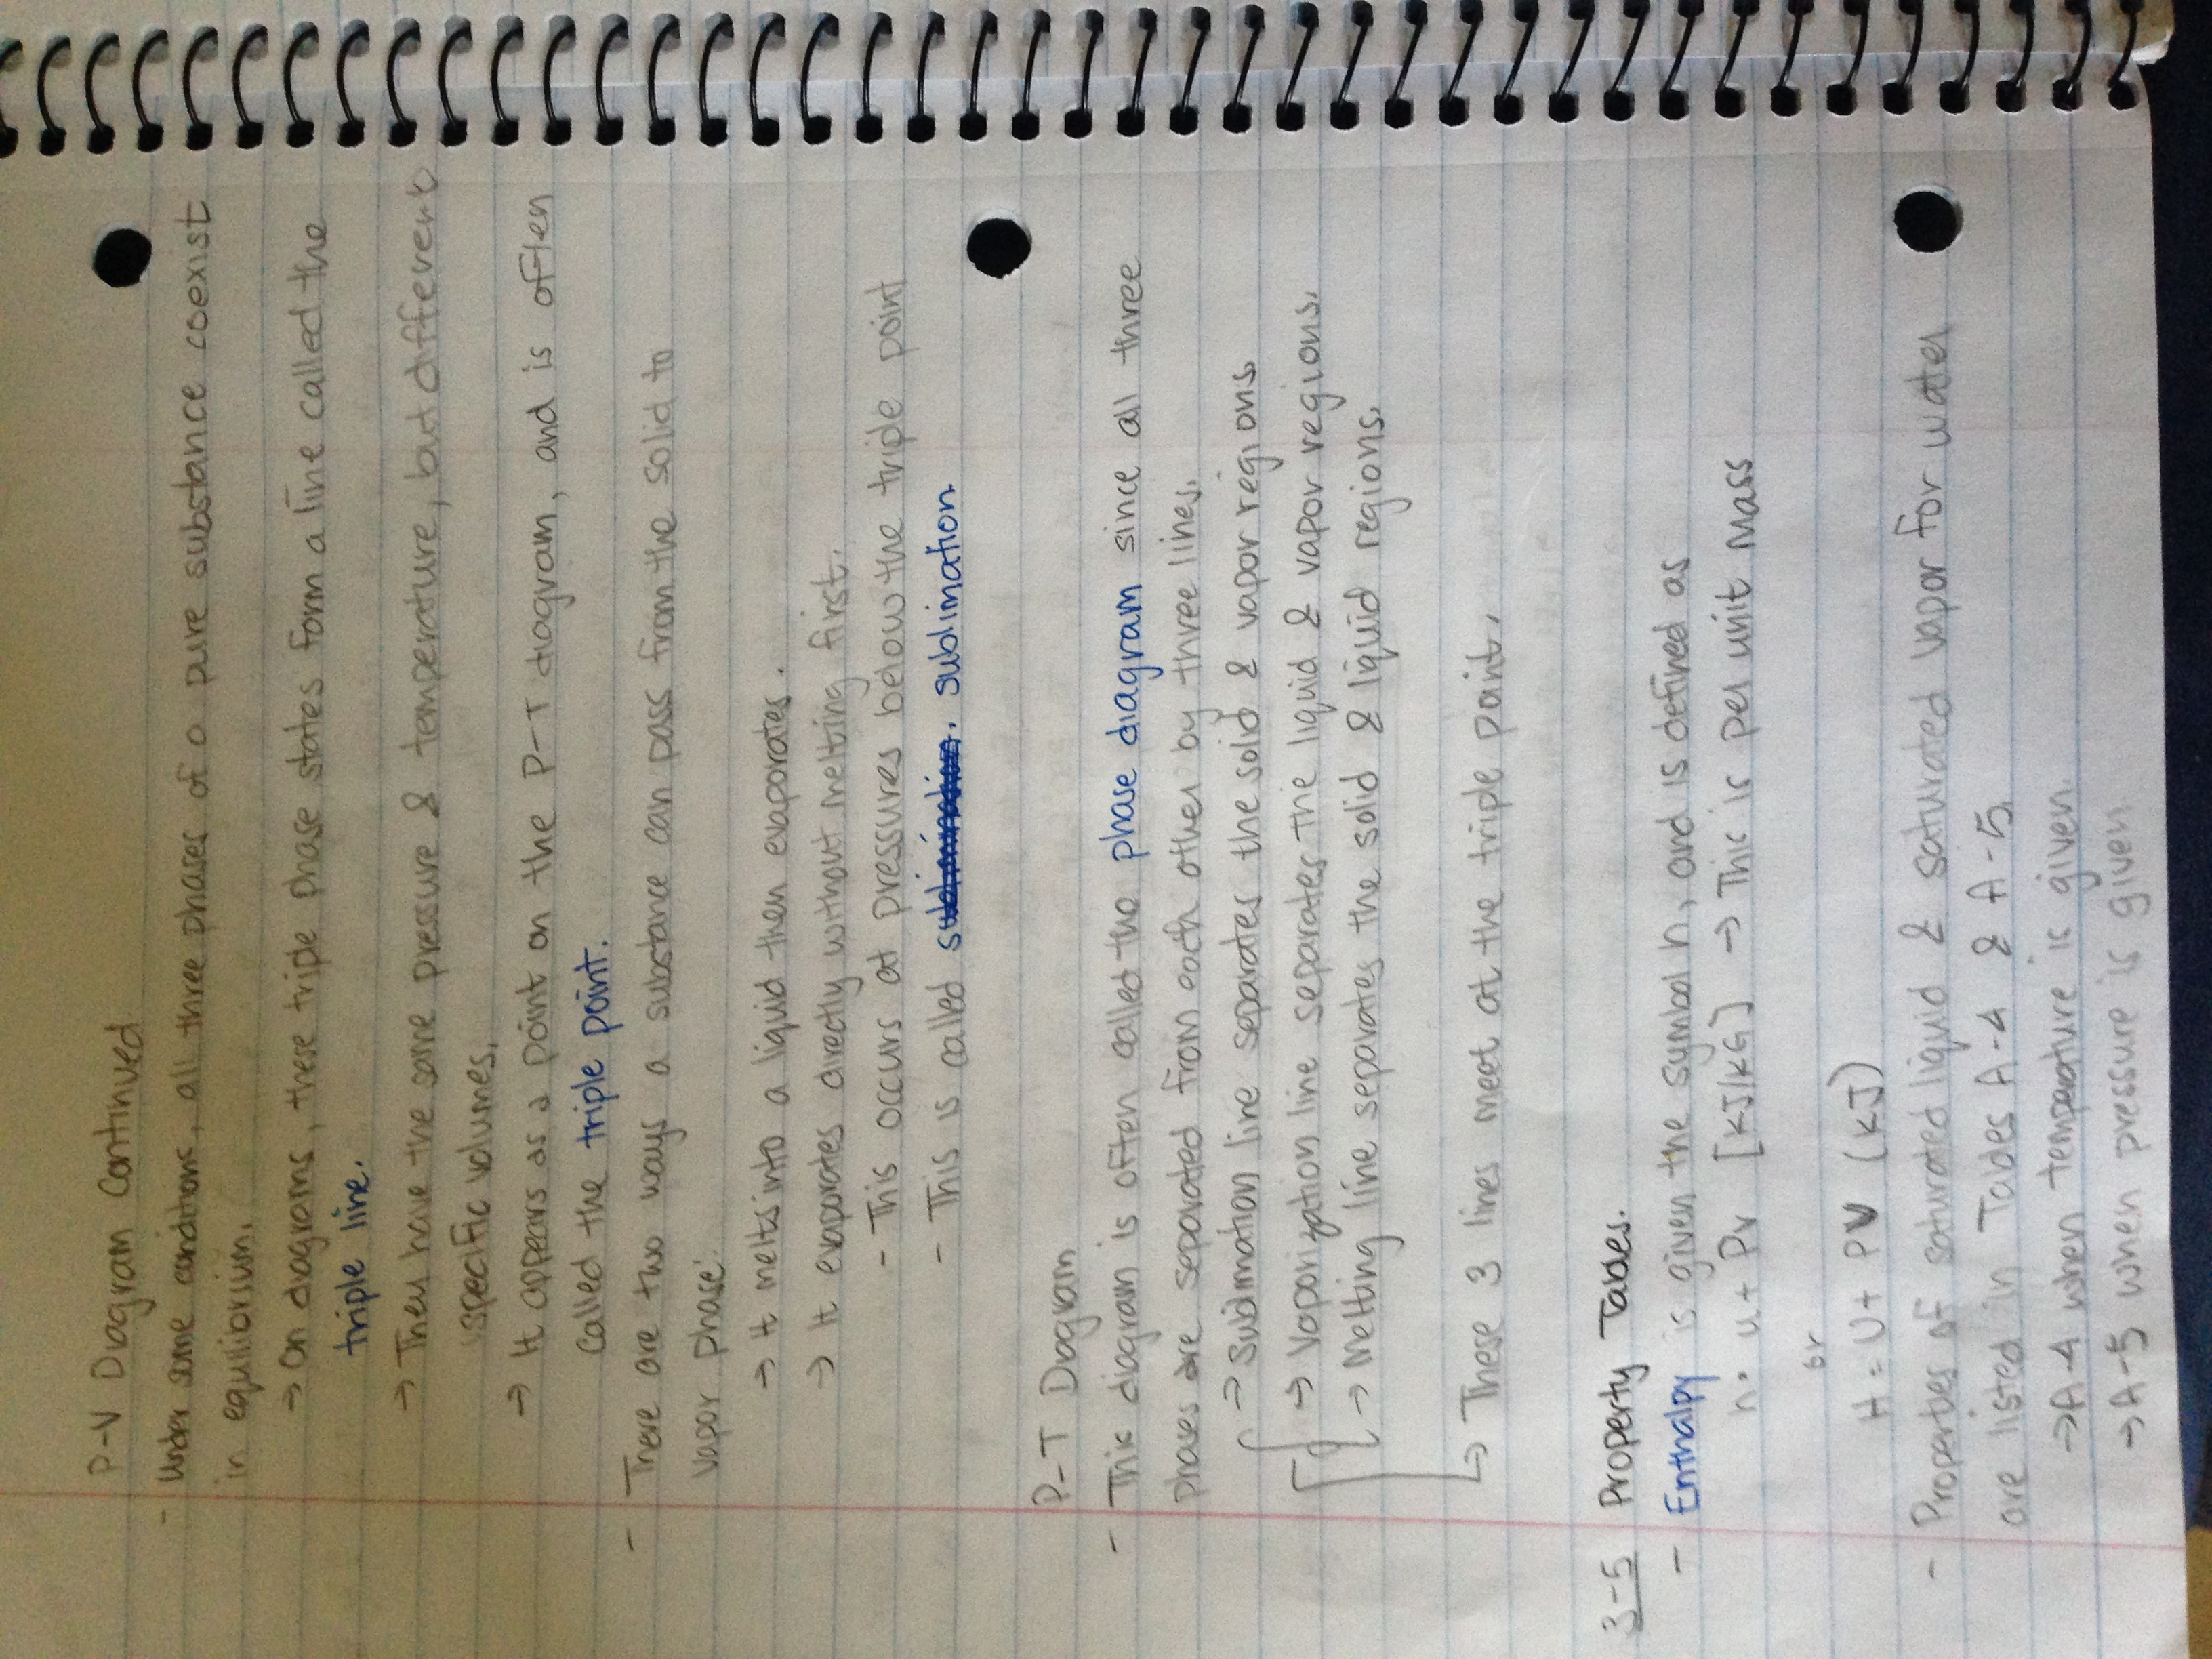 P-V Diagram Continued
- Under some conditions, all three phases of a pure substance coexist
in equilibrium.
→ On diagrams, these triple phase states form a line called the
triple line.
→ They have the same pressure & temperature, but different
specific volumes.
→ It appears as a point on the P-T diagram, and is often
called the triple point.
- There are two ways a substance can pass from the solid to
vapor phase.
→ It melts into a liquid then evaporates.
→ It evaporates directly without melting first.
- This occurs at pressures below the triple point
- This is called sublimation.
P-T Diagram
- This diagram is often called the phase diagram since all three
phases are separated from each other by three lines.
→ Sublimation line separates the solid & vapor regions.
→ Vaporization line separates the liquid & vapor regions.
→ Melting line separates the solid & liquid regions.
↳ These 3 lines meet at the triple point.
3-5 Property Tables.
- Enthalpy is given the symbol h, and is defined as
h = u + Pv [kJ/kG] → This is per unit mass
or
H = U + PV (kJ)
- Properties of saturated liquid & saturated vapor for water
are listed in Tables A-4 & A-5.
→ A-4 when temperature is given.
→ A-5 when pressure is given.